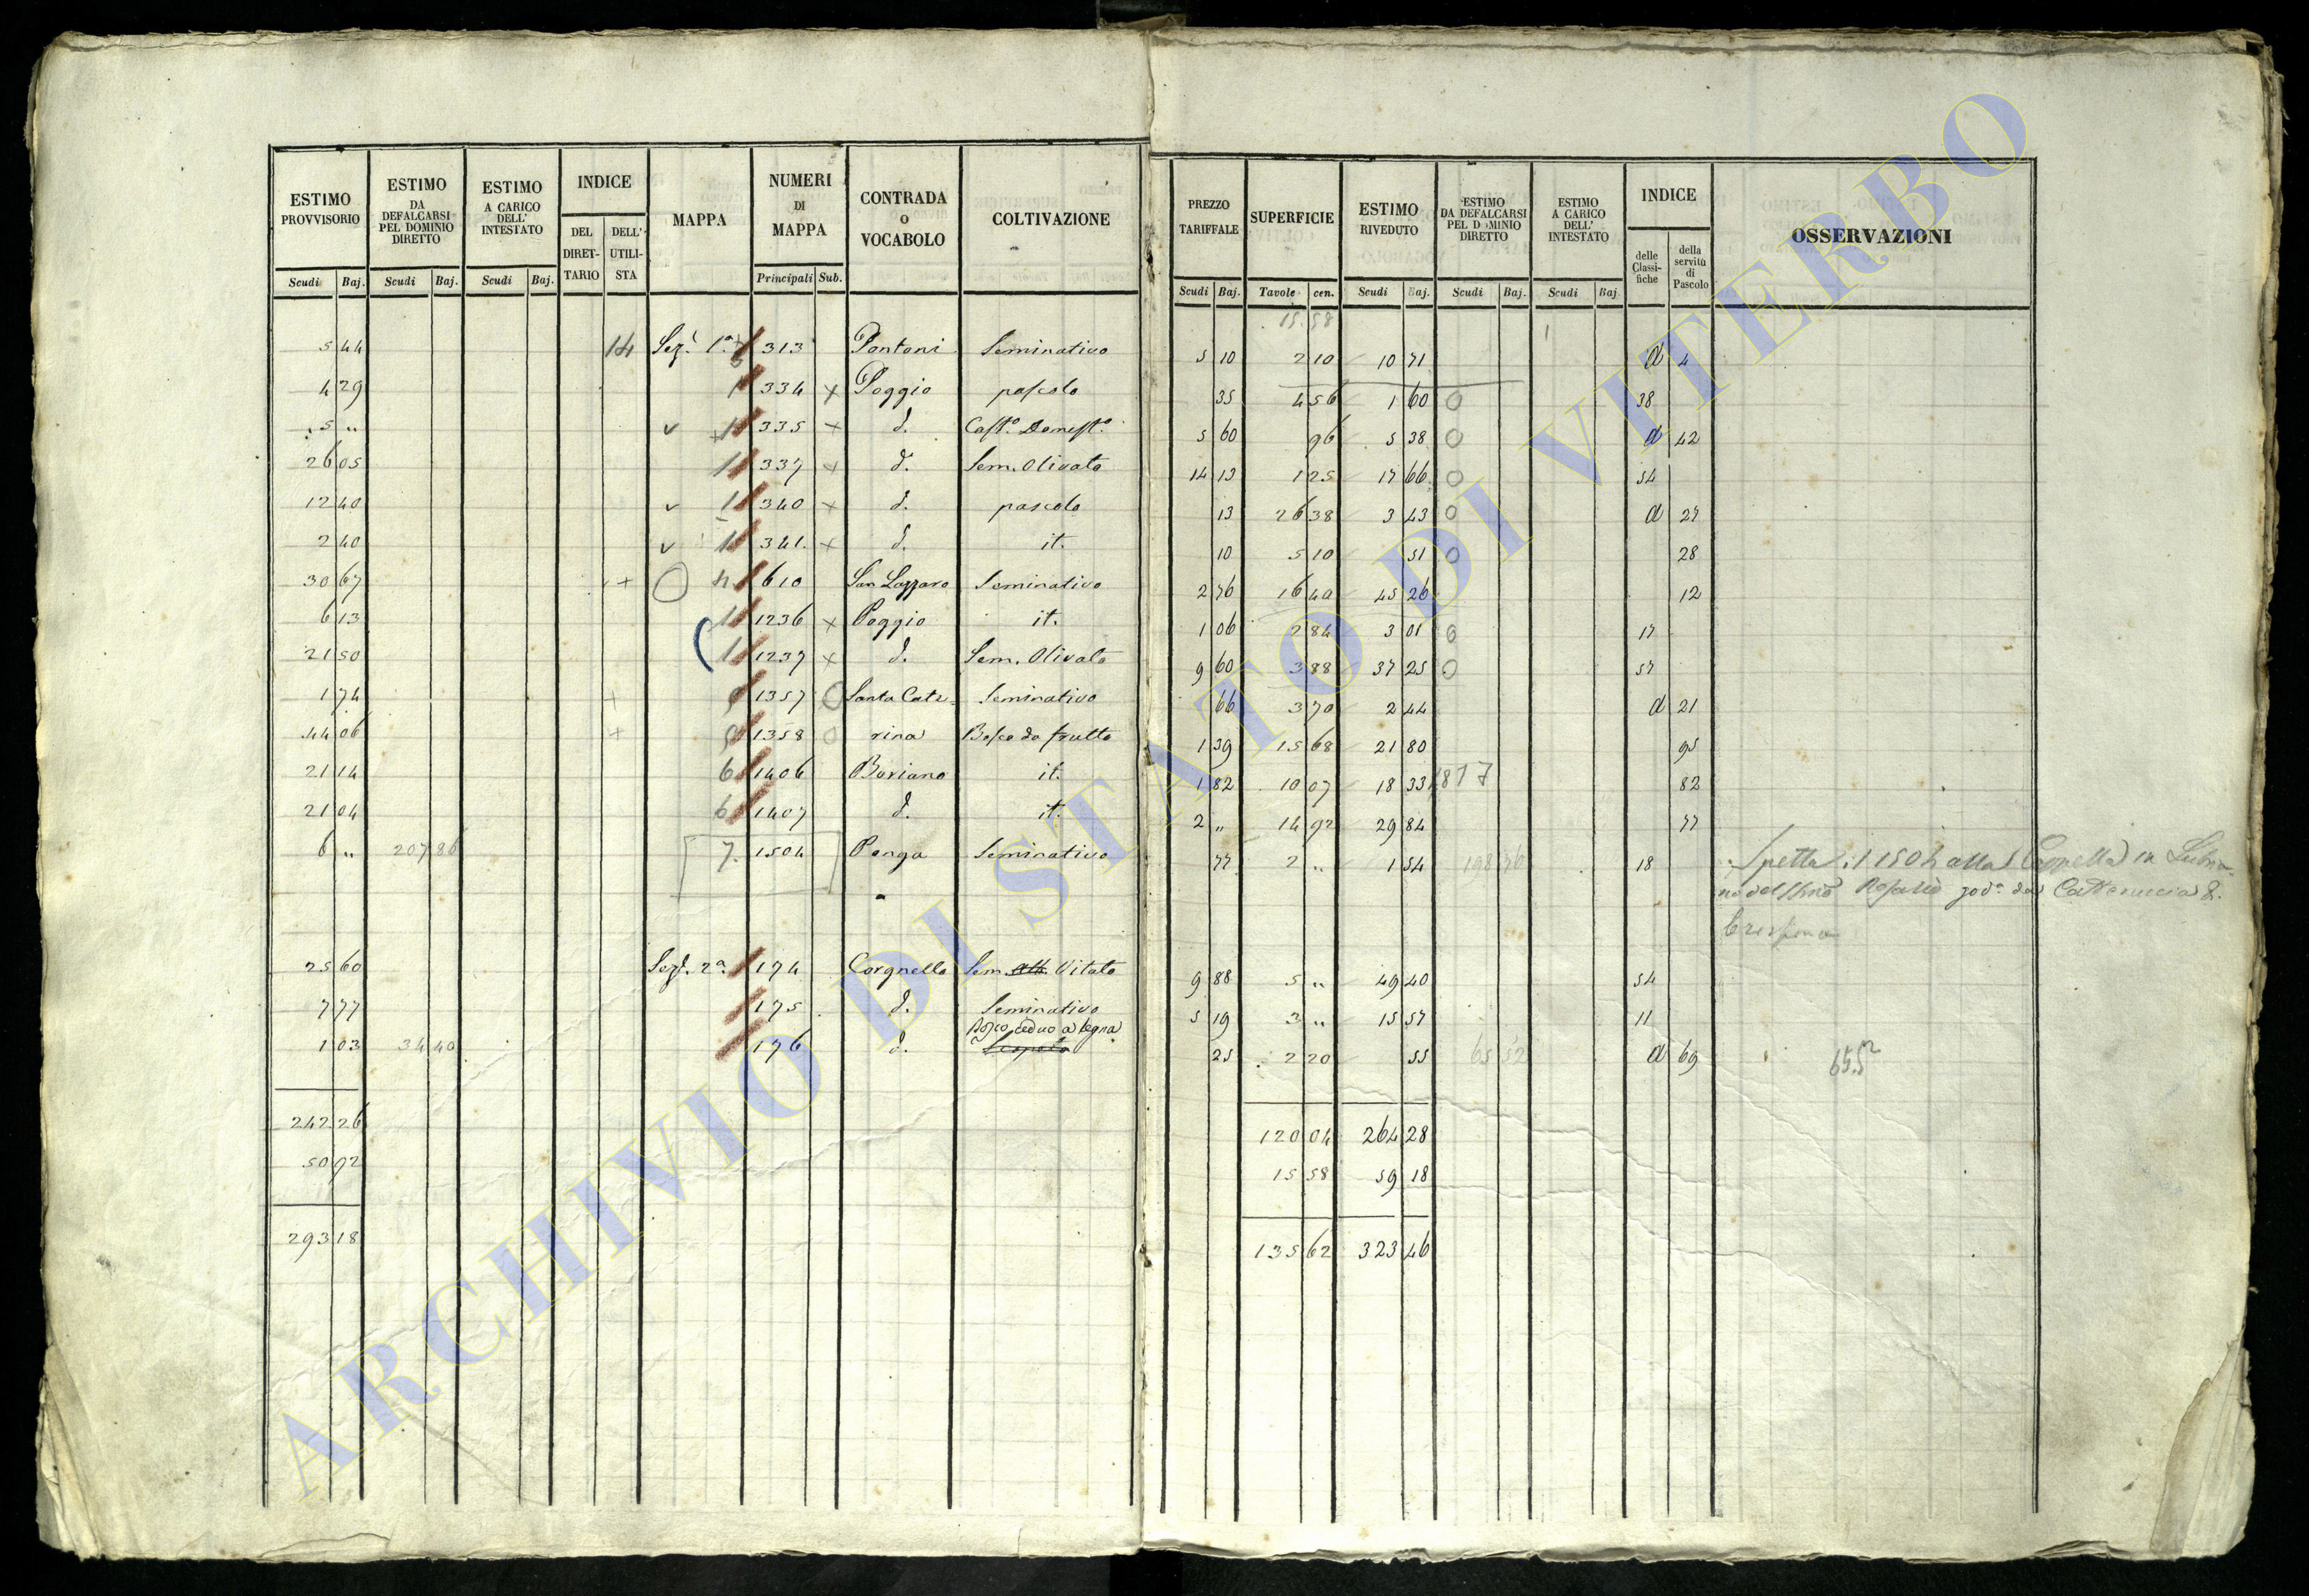 ESTIMO PROVVISORIO Scudi Baj. ESTIMO DA DEFALCARSI PEL DOMINIO DIRETTO Scudi Baj. ESTIMO A CARICO DELL' INTESTATO Scudi Baj. INDICE DEL DIRETTARIO DELL' UTILISTA MAPPA NUMERI DI MAPPA Principali Sub. CONTRADA O VOCABOLO COLTIVAZIONE
PREZZO TARIFFALE Scudi Baj. SUPERFICIE Tavole cen. ESTIMO RIVEDUTO Scudi Baj. ESTIMO DA DEFALCARSI PEL DOMINIO DIRETTO Scudi Baj. ESTIMO A CARICO DELL' INTESTATO Scudi Baj. INDICE delle Classifiche della servitù di Pascolo OSSERVAZIONI
15 58
5 44 14 Sez.e 1.a 313 Pantani Seminativo 5 10 2 10 10 71 a 4
4 29 1 334 x Poggio pascolo 35 4 56 1 60 0 38
5 " v 1 335 x d. Cast.o Domest.o 5 60 96 5 38 0 a 42
26 05 1 337 x d. Sem. Olivato 14 13 1 25 17 66 0 54
12 40 v 1 340 x d. pascolo 13 26 38 3 43 0 a 27
2 40 v 1 341. x d. it. 10 5 10 51 0 28
30 67 + O 4 610 San Lazzaro Seminativo 2 76 16 40 45 26 12
6 13 1 1236 x Poggio it. 1 06 2 84 3 01 0 17
21 50 1 1237 x d. Sem. Olivato 9 60 3 88 37 25 0 57
1 74 + 1357 O Santa Cate Seminativo 66 3 70 2 44 a 21
44 06 + 1358 O rina Bosco da frutto 1 39 15 68 21 80 95
21 14 6 1406 Boriano it. 1 82 10 07 18 33 1817 82
21 04 6 1407 d. it. 2 " 14 92 29 84 77
6 " 207 86 7. 1504 Ponga Seminativo 77 2 " 1 54 198 76 18 Spetta il 1504 alla Cappella in Lubria
no del SSmo Rosario god.a da Catterucia &.
Crespino
25 60 Sez.e 2.a 174 Corgnello Sem. Vitato 9 88 5 " 49 40 54
7 77 175 d. Seminativo 5 19 3 " 15 57 11
Bosco ceduo a legna
1 03 34 40 176 d. 25 2 20 55 65 52 a 69 65.52
242 26 120 04 264 28
50 92 15 58 59 18
293 18 135 62 323 46
ARCHIVIO DI STATO DI VITERBO